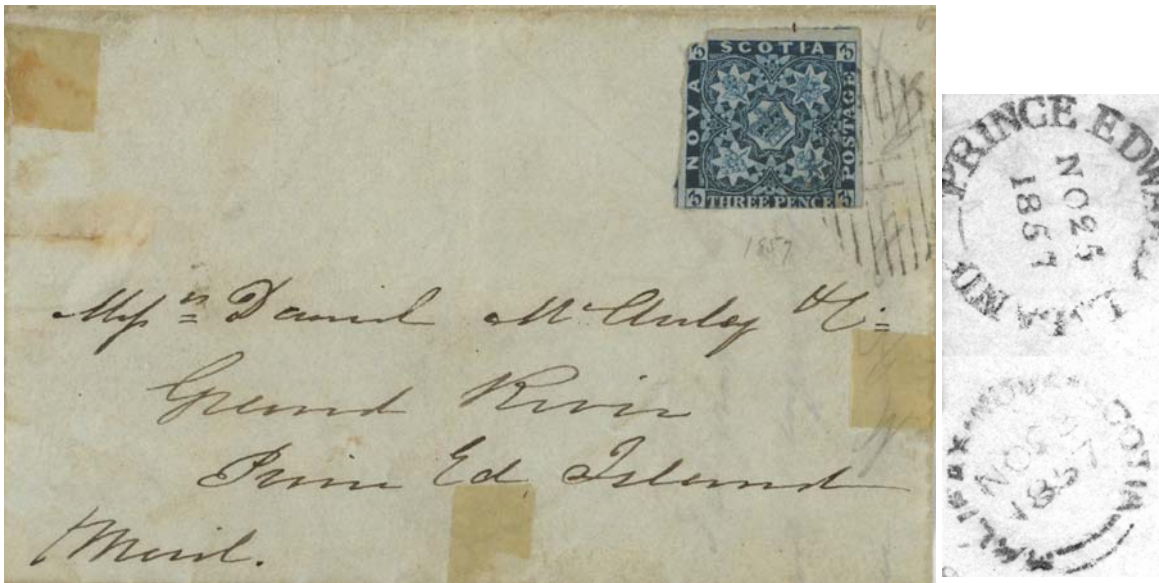 SCOTIA
NOVA
POSTAGE
THREE PENCE
1857
Mess<sup>rs</sup> Daniel McAuley & Co
Grand River
Prince Ed. Island
PRINCE EDWARD ISLAND
NO 25
1857
HALIFAX NOVA SCOTIA
NO
1857